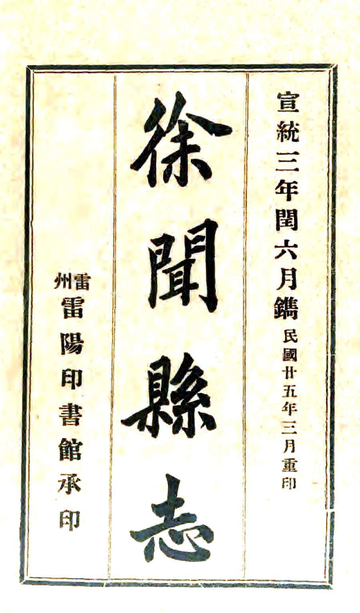 宣統三年閏六月鐫民國廿五年三月重印
徐聞縣志
雷州雷陽印書館承印